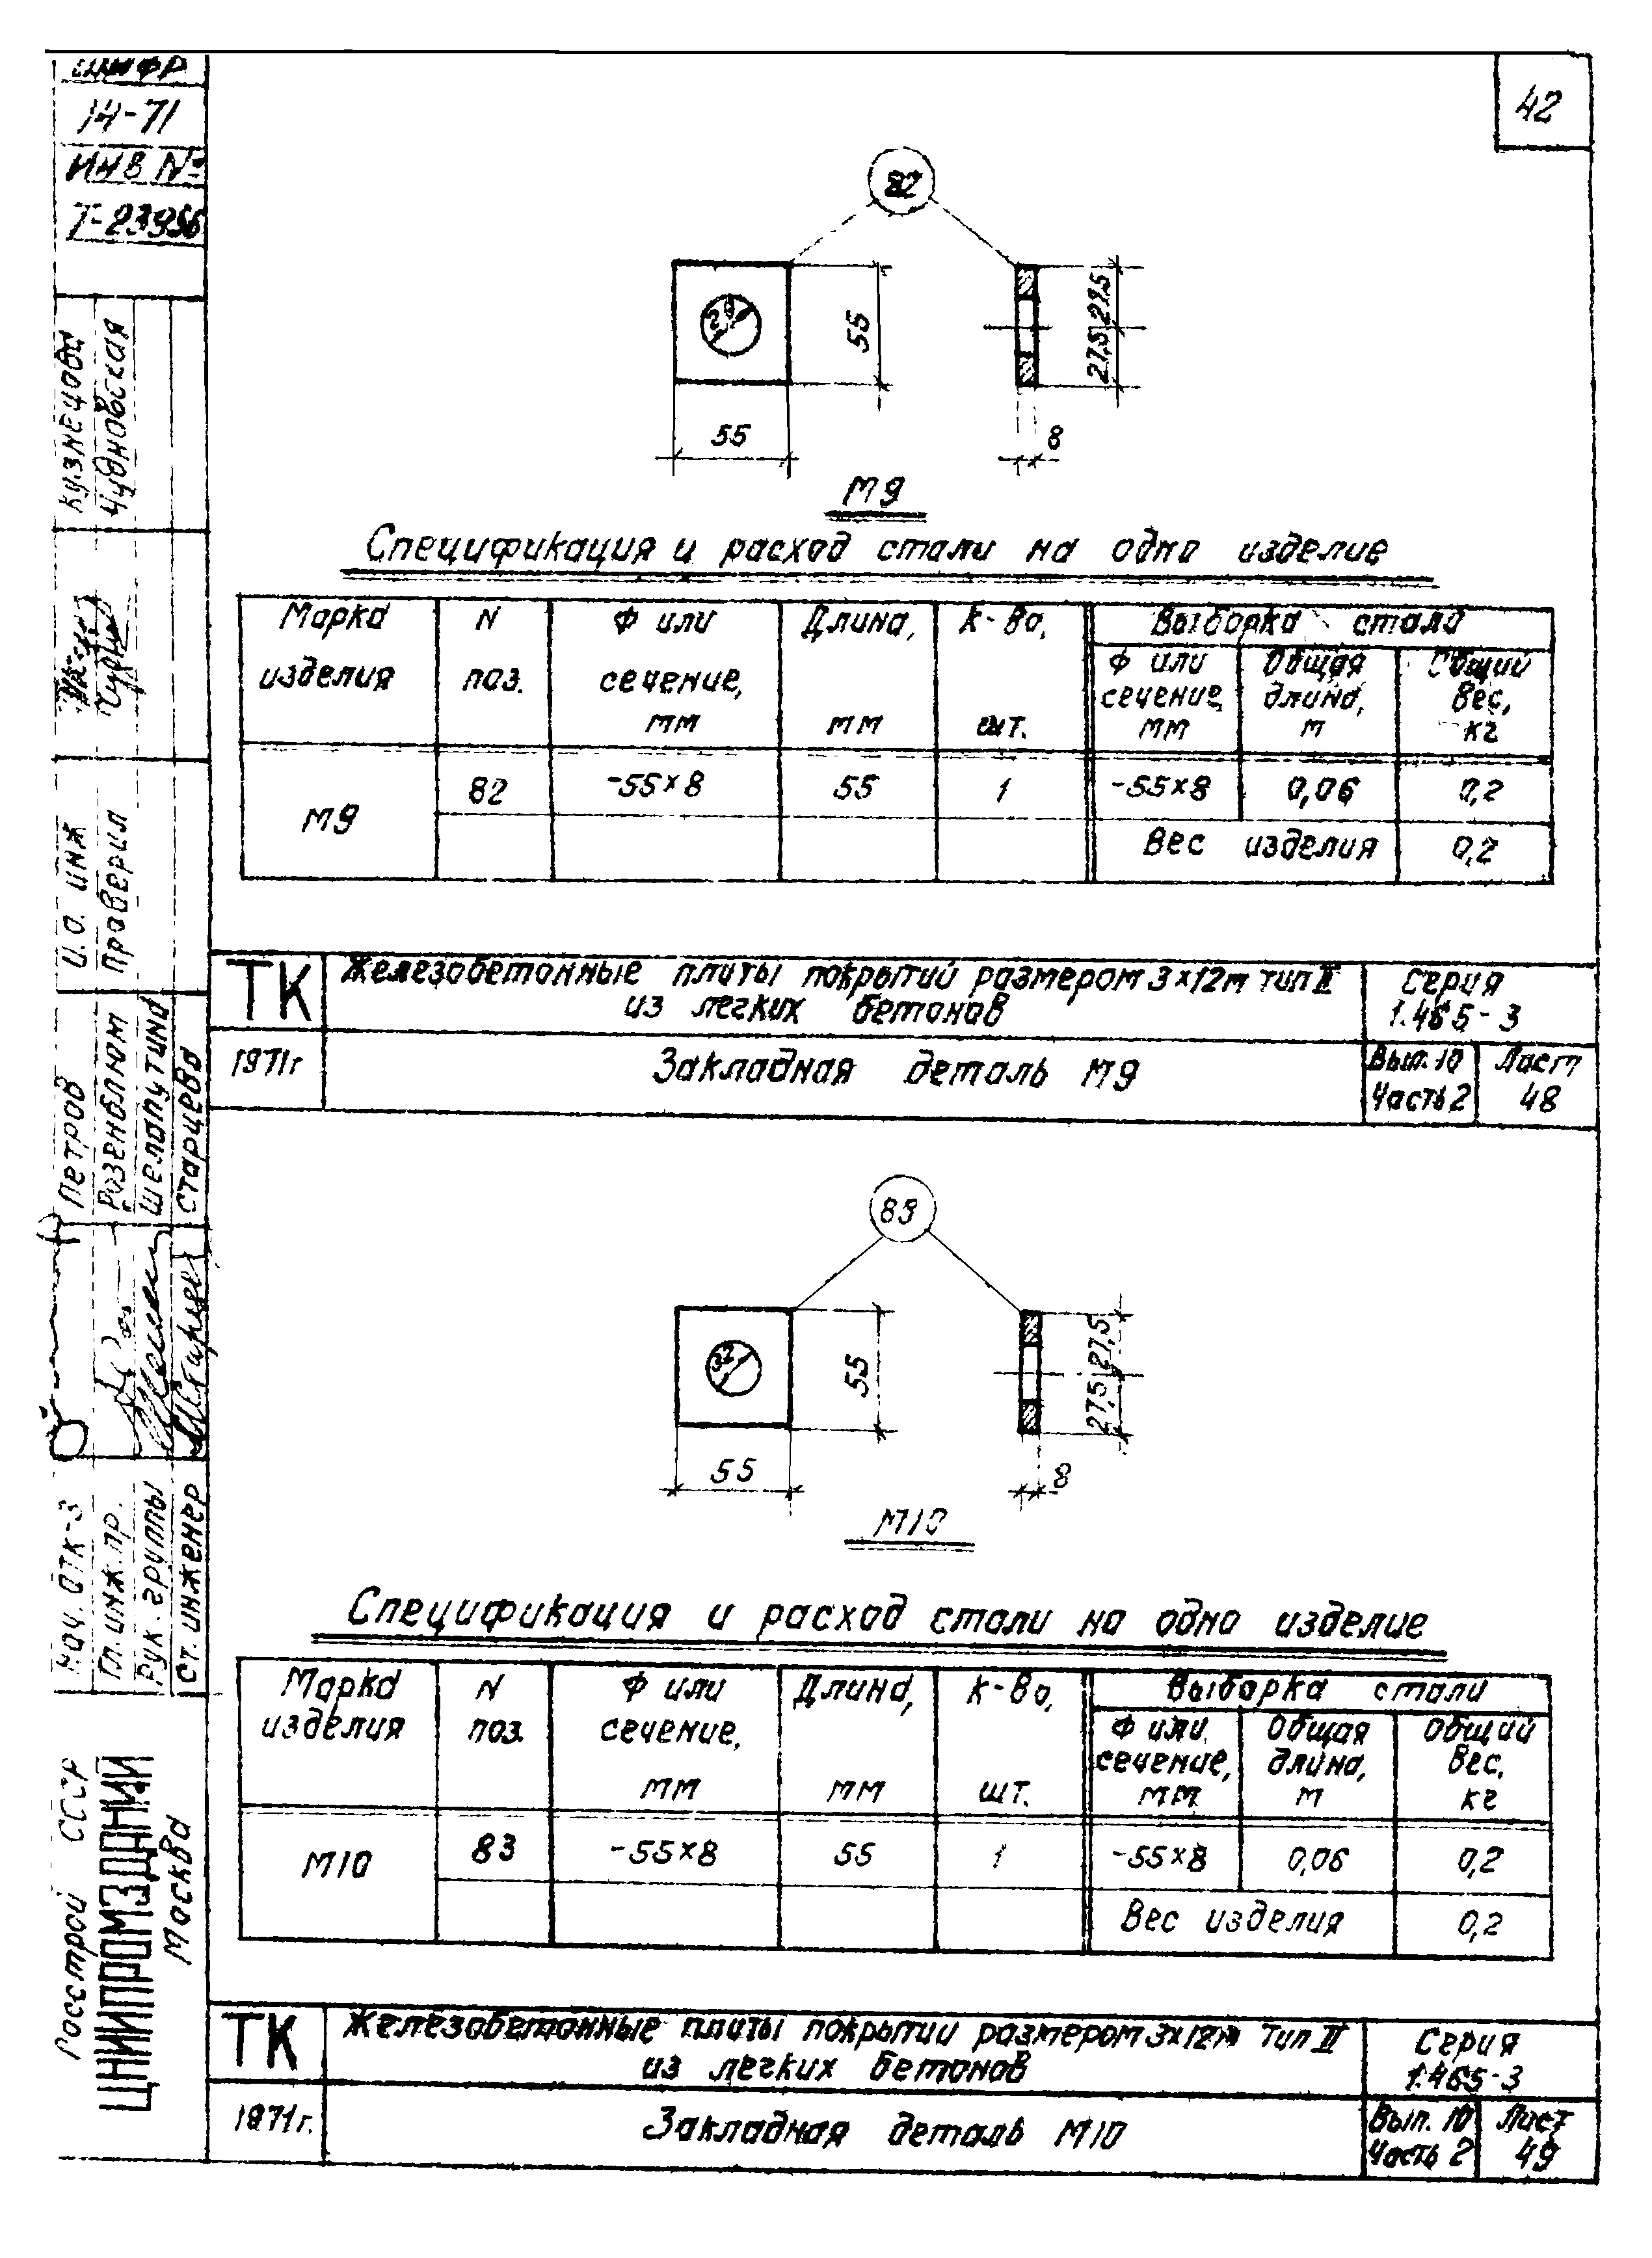 шифр
14-71
ИНВ №
42
82
29
55
55
27,5 27,5
8
М9
Спецификация и расход стали на одно изделие
Марка изделия
N поз.
Ф или сечение, мм
Длина, мм
к-во, шт.
Выборка стали
Ф или сечение, мм
Общая длина, м
Общий вес, кг
М9
82
-55×8
55
1
-55×8
0,06
0,2
Вес изделия
0,2
ТК
Железобетонные плиты покрытий размером 3×12м тип II
из легких бетонов
Серия
1.465-3
1971г
Закладная деталь М9
Вып. 10
Часть 2
Лист
48
83
32
55
55
27,5 27,5
8
М10
Спецификация и расход стали на одно изделие
Марка изделия
N поз.
Ф или сечение, мм
Длина, мм
к-во, шт.
Выборка стали
Ф или сечение, мм
Общая длина, м
Общий вес, кг
М10
83
-55×8
55
1
-55×8
0,06
0,2
Вес изделия
0,2
ТК
Железобетонные плиты покрытий размером 3×12м тип II
из легких бетонов
Серия
1.465-3
1971г.
Закладная деталь М10
Вып. 10
Часть 2
Лист
49
Кузнецова
Чудновская
И.О. инж
Проверил
Петров
Розенблюм
Шелапутина
Старцева
Нач. ОТК-3
Гл. инж. пр.
Рук. группы
Ст. инженер
Росстрой СССР
ЦНИИПРОМЗДАНИЙ
Москва